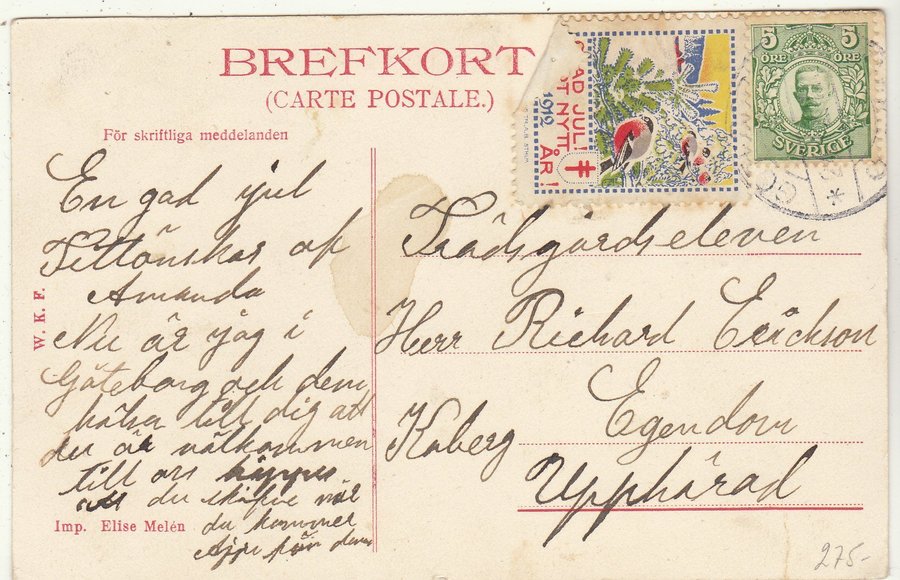 BREFKORT
(CARTE POSTALE.)
För skriftliga meddelanden
GOD JUL!
OCH ETT GOTT NYTT ÅR!
1912
5 5
ÖRE ÖRE
SVERIGE
En gad jul
Tillönskas af
Amanda
Nu är jag i
Göteborg och dem
hälsa till dig att
du är välkommen
till oss
att du skrifve när
du kommer
från dem
Trädsgårdseleven
Herr Richard Erickson
Koberg Egendom
Upphärad
W. K. F.
Imp. Elise Melén
275-